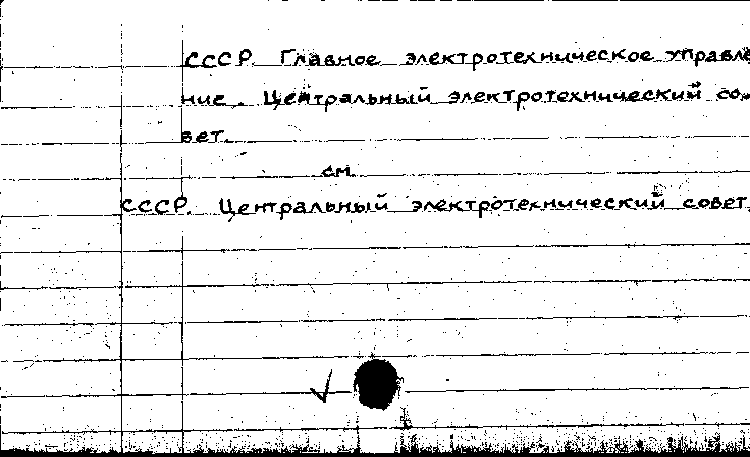 СССР. Главное электротехническое управле
ние. Центральный электротехнический со-
вет.
см.
СССР. Центральный электротехнический совет.